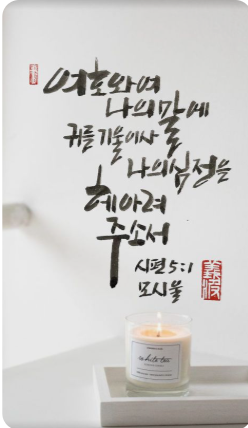 여호와여
나의 말에
귀를 기울이사
나의 심정을
헤아려
주소서
시편 5:1
white tea